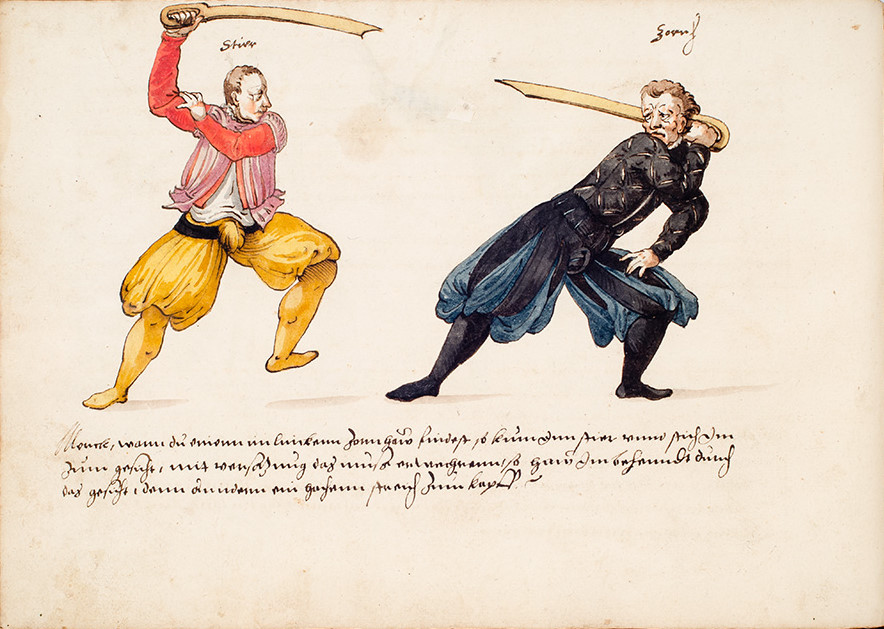 Stier
Zorn
Merck, wann du einenn im linckenn Zornhaw findest so kum Inn stier vnnd stich Im
Zum gesicht, mit versatzung das muss er wehrenn, so haw Im behenndt durch
das gesicht, denn annderm ein hochenn streich Zum kopff.